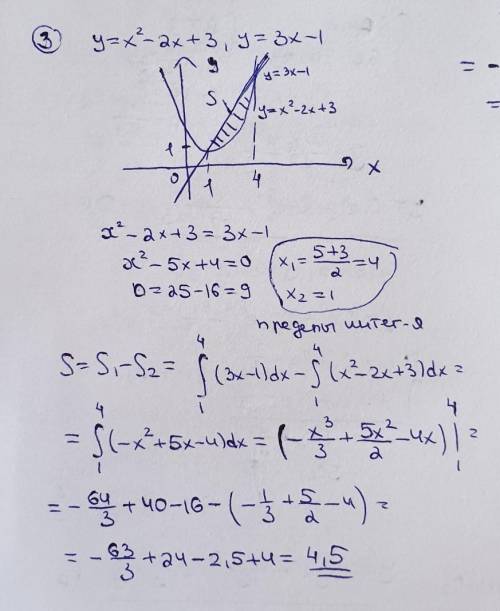 ③ y=x²-2x+3, y=3x-1
=-
=
y
y=3x-1
S
y=x²-2x+3
1
0 1 4 x
x²-2x+3=3x-1
x²-5x+4=0
D=25-16=9
x₁=\frac{5+3}{2}=4
x₂=1
пределы интег-я
S=S₁-S₂= \int_{1}^{4}(3x-1)dx-\int_{1}^{4}(x²-2x+3)dx=
=\int_{1}^{4}(-x²+5x-4)dx=(-\frac{x³}{3}+\frac{5x²}{2}-4x)|_{1}^{4}=
=-\frac{64}{3}+40-16-(-\frac{1}{3}+\frac{5}{2}-4)=
=-\frac{63}{3}+24-2,5+4=4,5